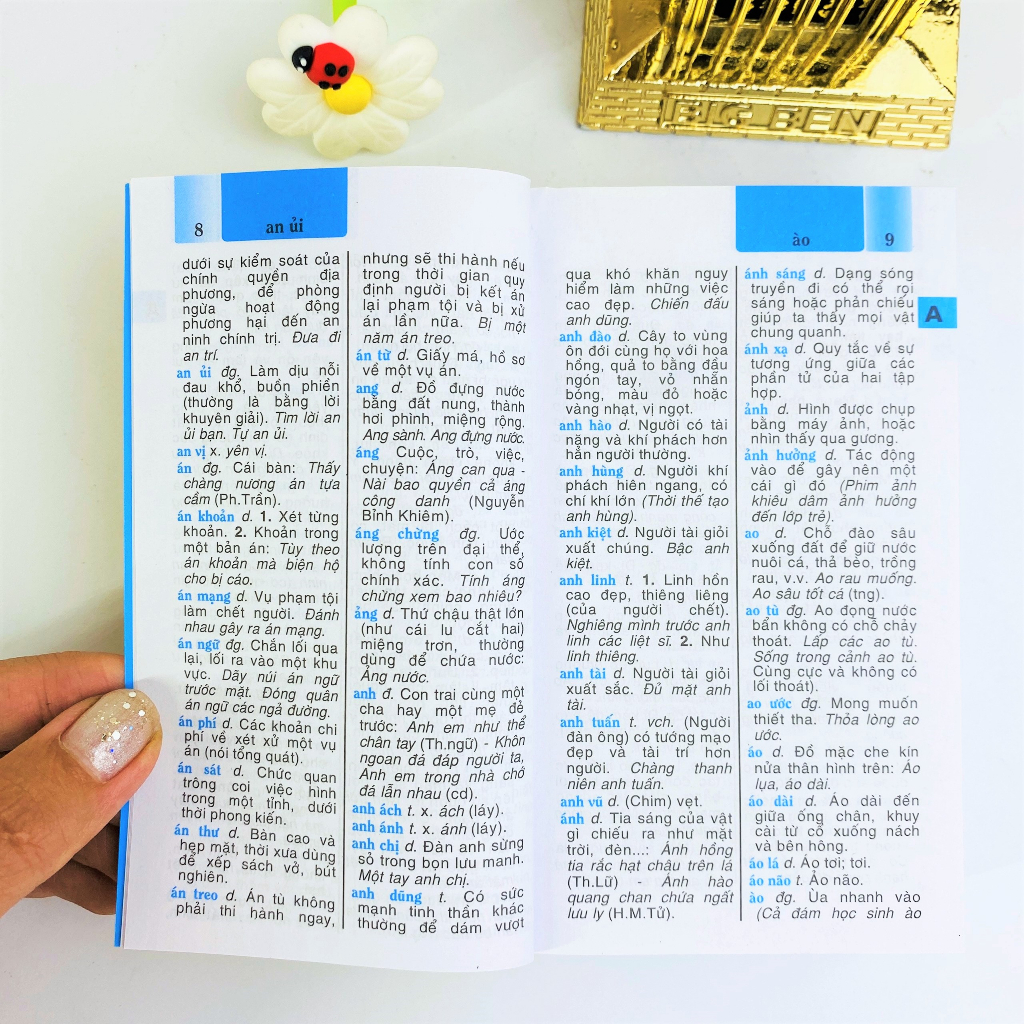 BIG BEN
8
an ủi
dưới sự kiểm soát của
chính quyền địa
phương, để phòng
ngừa hoạt động
phương hại đến an
ninh chính trị. Đưa đi
an trí.
an ủi đg. Làm dịu nỗi
đau khổ, buồn phiền
(thường là bằng lời
khuyên giải). Tìm lời an
ủi bạn. Tự an ủi.
an vị x. yên vị.
án đg. Cái bàn: Thấy
chàng nương án tựa
cầm (Ph.Trần).
án khoản d. 1. Xét từng
khoản. 2. Khoản trong
một bản án: Tùy theo
án khoản mà biện hộ
cho bị cáo.
án mạng d. Vụ phạm tội
làm chết người. Đánh
nhau gây ra án mạng.
án ngữ đg. Chắn lối qua
lại, lối ra vào một khu
vực. Dãy núi án ngữ
trước mặt. Đóng quân
án ngữ các ngả đường.
án phí d. Các khoản chi
phí về xét xử một vụ
án (nói tổng quát).
án sát d. Chức quan
trông coi việc hình
trong một tỉnh, dưới
thời phong kiến.
án thư d. Bàn cao và
hẹp mặt, thời xưa dùng
để xếp sách vở, bút
nghiên.
án treo d. Án tù không
phải thi hành ngay,
nhưng sẽ thi hành nếu
trong thời gian quy
định người bị kết án
lại phạm tội và bị xử
án lần nữa. Bị một
năm án treo.
án từ d. Giấy má, hồ sơ
về một vụ án.
ang d. Đồ đựng nước
bằng đất nung, thành
hơi phình, miệng rộng.
Ang sành. Ang đựng nước.
áng Cuộc, trò, việc,
chuyện: Áng can qua -
Nài bao quyền cả áng
công danh (Nguyễn
Bỉnh Khiêm).
áng chừng đg. Ước
lượng trên đại thể,
không tính con số
chính xác. Tính áng
chừng xem bao nhiêu?
ảng d. Thứ chậu thật lớn
(như cái lu cắt hai)
miệng trơn, thường
dùng để chứa nước:
Ảng nước.
anh đ. Con trai cùng một
cha hay một mẹ đẻ
trước: Anh em như thể
chân tay (Th.ngữ) - Khôn
ngoan đá đáp người ta,
Anh em trong nhà chớ
đá lẫn nhau (cd).
anh ách t. x. ách (láy).
anh ánh t. x. ánh (láy).
anh chị d. Đàn anh sừng
sỏ trong bọn lưu manh.
Một tay anh chị.
anh dũng t. Có sức
mạnh tinh thần khác
thường để dám vượt
ào
9
A
qua khó khăn nguy
hiểm làm những việc
cao đẹp. Chiến đấu
anh dũng.
anh đào d. Cây to vùng
ôn đới cùng họ với hoa
hồng, quả to bằng đầu
ngón tay, vỏ nhẵn
bóng, màu đỏ hoặc
vàng nhạt, vị ngọt.
anh hào d. Người có tài
năng và khí phách hơn
hẳn người thường.
anh hùng d. Người khí
phách hiên ngang, có
chí khí lớn (Thời thế tạo
anh hùng).
anh kiệt d. Người tài giỏi
xuất chúng. Bậc anh
kiệt.
anh linh t. 1. Linh hồn
cao đẹp, thiêng liêng
(của người chết).
Nghiêng mình trước anh
linh các liệt sĩ. 2. Như
linh thiêng.
anh tài d. Người tài giỏi
xuất sắc. Đủ mặt anh
tài.
anh tuấn t. vch. (Người
đàn ông) có tướng mạo
đẹp và tài trí hơn
người. Chàng thanh
niên anh tuấn.
anh vũ d. (Chim) vẹt.
ánh d. Tia sáng của vật
gì chiếu ra như mặt
trời, đèn...: Ánh hồng
tia rắc hạt châu trên lá
(Th.Lữ) - Ánh hào
quang chan chứa ngất
lưu ly (H.M.Tử).
ánh sáng d. Dạng sóng
truyền đi có thể rọi
sáng hoặc phản chiếu
giúp ta thấy mọi vật
chung quanh.
ánh xạ d. Quy tắc về sự
tương ứng giữa các
phần tử của hai tập
hợp.
ảnh d. Hình được chụp
bằng máy ảnh, hoặc
nhìn thấy qua gương.
ảnh hưởng d. Tác động
vào để gây nên một
cái gì đó (Phim ảnh
khiêu dâm ảnh hưởng
đến lớp trẻ).
ao d. Chỗ đào sâu
xuống đất để giữ nước
nuôi cá, thả bèo, trồng
rau, v.v. Ao rau muống.
Ao sâu tốt cá (tng).
ao tù đg. Ao đọng nước
bẩn không có chỗ chảy
thoát. Lấp các ao tù.
Sống trong cảnh ao tù.
Cùng cực và không có
lối thoát).
ao ước đg. Mong muốn
thiết tha. Thỏa lòng ao
ước.
áo d. Đồ mặc che kín
nửa thân hình trên: Áo
lụa, áo dài.
áo dài d. Áo dài đến
giữa ống chân, khuy
cài từ cổ xuống nách
và bên hông.
áo lá d. Áo tơi; tơi.
áo não t. Ảo não.
ào đg. Ùa nhanh vào
(Cả đám học sinh ào